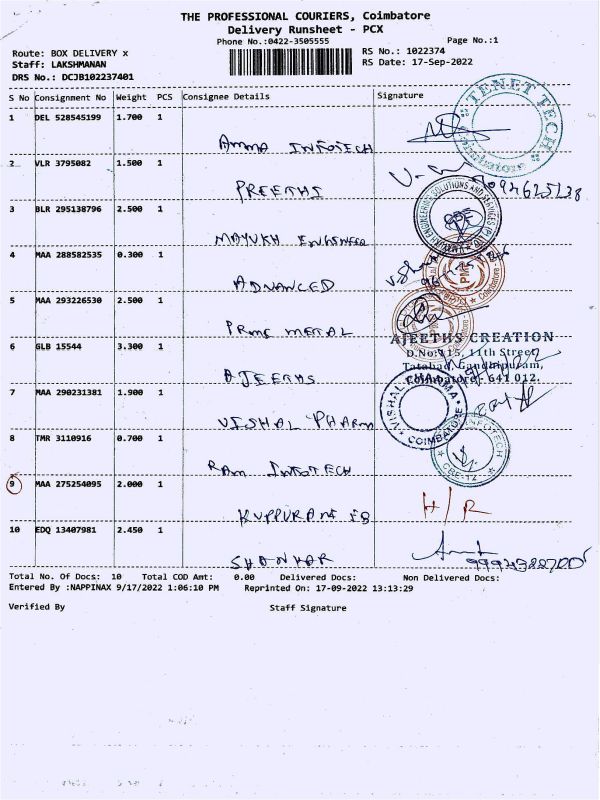 THE PROFESSIONAL COURIERS, Coimbatore
Delivery Runsheet - PCX
Phone No.:0422-3505555
Page No.:1
Route: BOX DELIVERY x
RS No.: 1022374
Staff: LAKSHMANAN
RS Date: 17-Sep-2022
DRS No.: DCJB102237401
S No Consignment No Weight PCS Consignee Details Signature
1 DEL 528545199 1.700 1
AMMA INFOTECH
TENET TECH
Coimbatore
2 VLR 3795082 1.500 1
PREETHI
3 BLR 295138796 2.500 1
MAYUKH ENGINEER
4 MAA 288582535 0.300 1
ADVANCED
5 MAA 293226530 2.500 1
PRIME METAL
AJEETHS CREATION
D.No:115, 11th Street,
Tatabad, Gandhipuram,
Coimbatore - 641 012.
6 GLB 15544 3.300 1
AJEETHS
7 MAA 290231381 1.900 1
VISHAL PHARMA
VISHAL PHARMA
COIMBATORE
8 TMR 3110916 0.700 1
RAM INFOTECH
INFOTECH
CBE-12
9 MAA 275254095 2.000 1
H/R
10 EDQ 13407981 2.450 1
SHANKAR
Total No. Of Docs: 10 Total COD Amt: 0.00 Delivered Docs: Non Delivered Docs:
Entered By :NAPPINAX 9/17/2022 1:06:10 PM Reprinted On: 17-09-2022 13:13:29
Verified By Staff Signature